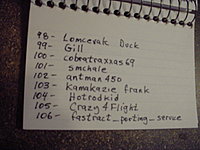 98- Lomcevak Duck
99- Gill
100- cobratraxxas69
101- smchale
102- antman450
103- Kamakazie frank
104- Hotrodkid
105- Crazy 4 Flight
106- fastract_porting_service